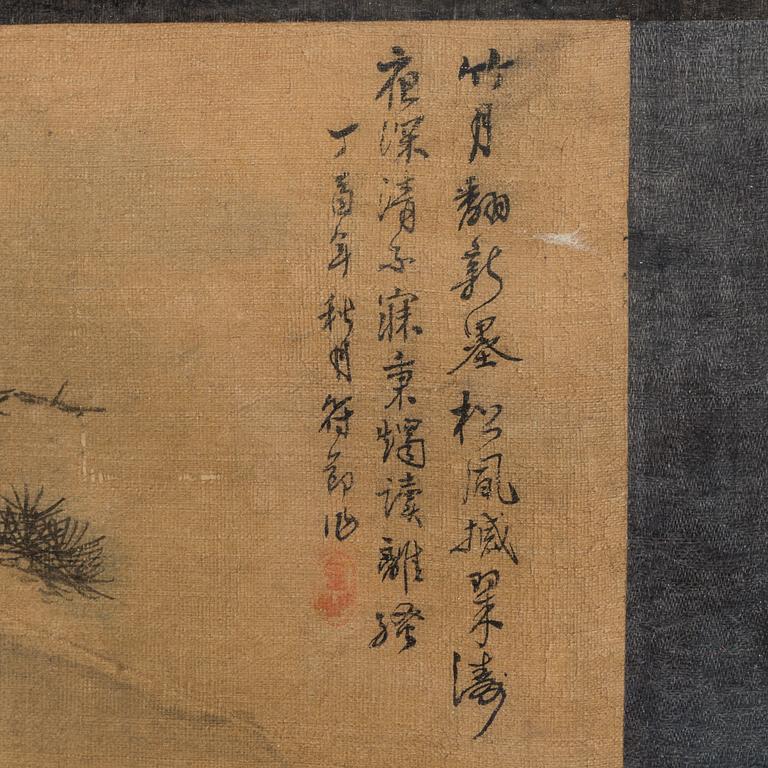 竹月翻新墨松風撼翠濤
夜深清不寐秉燭读離騷
丁酉年秋月符節作